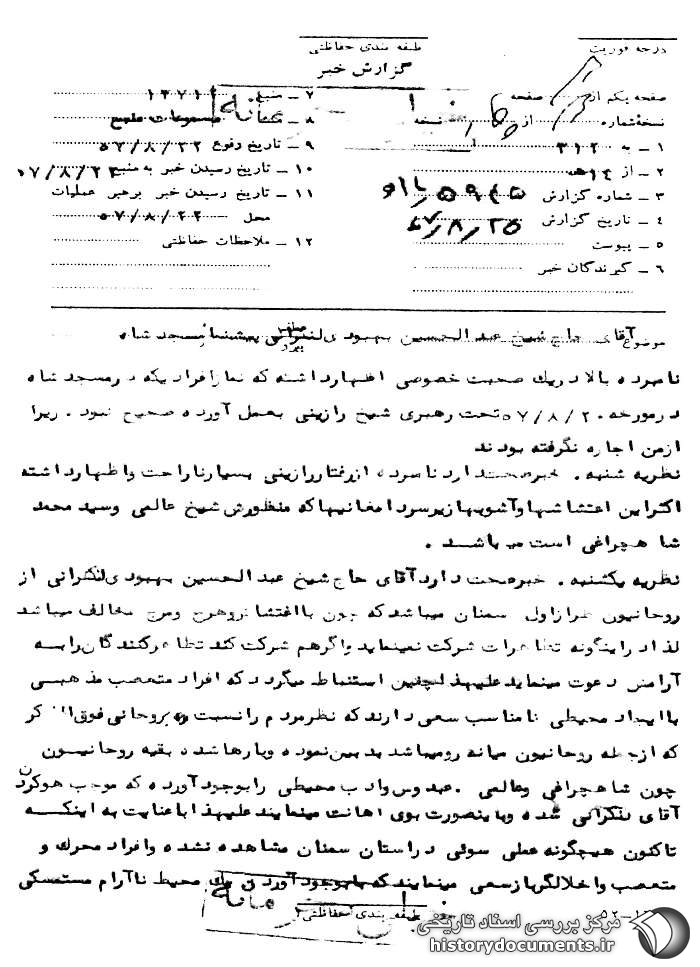 درجه فوریت
طبقه بندی حفاظتی
گزارش خبر
صفحه یکم از صفحه
نسخه شماره از نسخه
۱ ـ به ۳۱۲
۲ ـ از ۱۴ه‍
۳ ـ شماره گزارش
۴ ـ تاریخ گزارش ۵۷/۸/۲۵
۵ ـ پیوست
۶ ـ گیرندگان خبر
۷ ـ منبع
۸ ـ مسموعات منبع
۹ ـ تاریخ وقوع ۵۷/۸/۲۲
۱۰ ـ تاریخ رسیدن خبر به منبع ۵۷/۸/۲۲
۱۱ ـ تاریخ رسیدن خبر برهبر عملیات
محل ۵۷/۸/۲۲
۱۲ ـ ملاحظات حفاظتی
موضوع آقای حاج شیخ عبدالحسین بهبودی لنکرانی پیشنماز مسجد شاه
نامبرده بالا در یك صحبت خصوصی اظهارداشته که نماز افرادیکه در مسجد شاه
در مورخه ۵۷/۸/۲۰ تحت رهبری شیخ رازینی بعمل آورده صحیح نبود . زیرا
ازمن اجازه نگرفته بودند
نظریه شنبه . خبر صحت دارد نامبرده از رفتار رازینی بسیار ناراحت و اظهار داشته
اکثر این اغتشاشها و آشوبها زیر سر دامغانیها که منظورش شیخ عالمی وسید محمد
شاهچراغی است میباشد .
نظریه یکشنبه . خبر صحت دارد آقای حاج شیخ عبدالحسین بهبودی لنکرانی از
روحانیون طراز اول سمنان میباشد که چون با اغتشاش و هرج ومرج مخالف میباشد
لذا در اینگونه تظاهرات شرکت نمینماید و اگر هم شرکت کند تظاهرکنندگان را به
آرامش دعوت مینماید علیهذا چنین استنباط میگردد که افراد متعصب مذهبی
با ایجاد محیطی نامناسب سعی دارند که نظر مردم را نسبت به روحانی فوق الذکر
که ازجمله روحانیون میانه رو میباشد بدبین نموده وبارها شده بقیه روحانیون
چون شاهچراغی وعالمی . عبدوس وادب محیطی را بوجود آورده که موجب هوکردن
آقای لنکرانی شده وباینصورت بوی اهانت مینمایند علیهذا باعنایت به اینکه
تاکنون هیچگونه عملی سوئی در استان سمنان مشاهده نشده وافراد محرك و
متعصب واخلالگر باز سعی مینمایند که با بوجود آوردن محیط ناآرام مستمسکی
طبقه بندی حفاظتی
مرکز بررسی اسناد تاریخی
historydocuments.ir